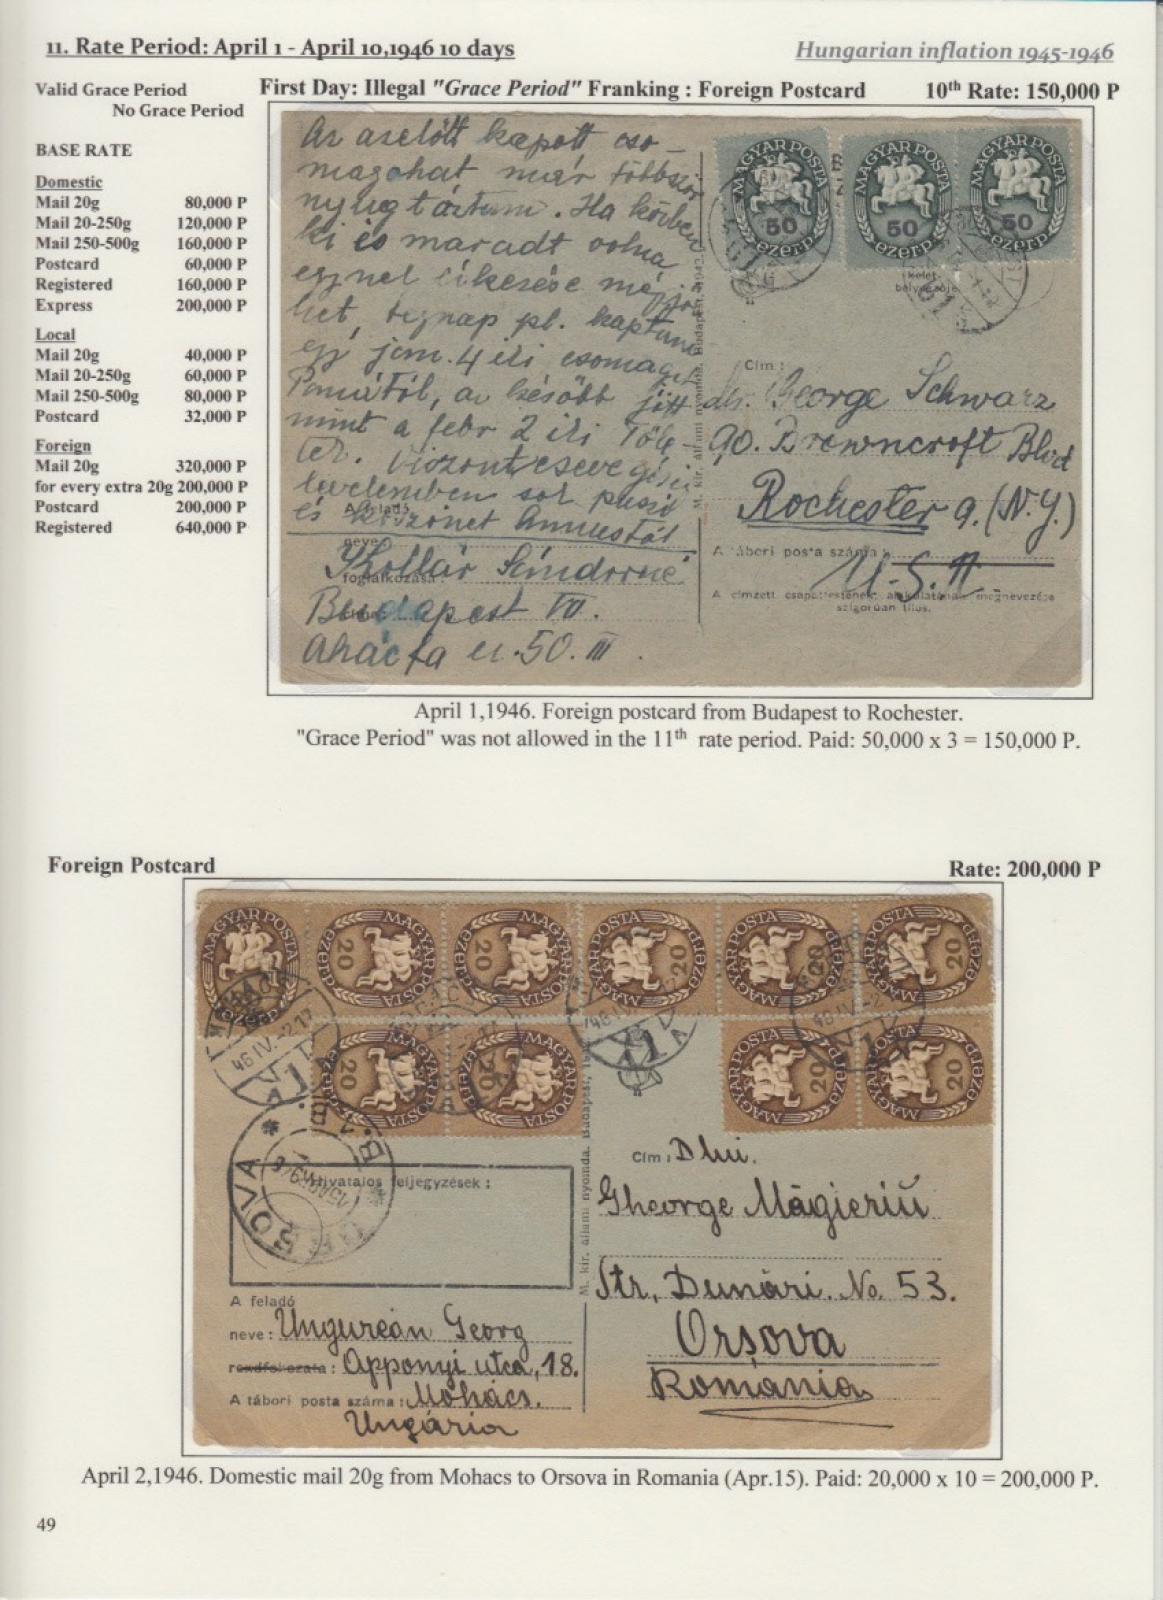 11. Rate Period: April 1 - April 10,1946 10 days
Hungarian inflation 1945-1946
Valid Grace Period
No Grace Period
First Day: Illegal "Grace Period" Franking : Foreign Postcard
10th Rate: 150,000 P
BASE RATE
Domestic
Mail 20g 80,000 P
Mail 20-250g 120,000 P
Mail 250-500g 160,000 P
Postcard 60,000 P
Registered 160,000 P
Express 200,000 P
Local
Mail 20g 40,000 P
Mail 20-250g 60,000 P
Mail 250-500g 80,000 P
Postcard 32,000 P
Foreign
Mail 20g 320,000 P
for every extra 20g 200,000 P
Postcard 200,000 P
Registered 640,000 P
Az azelőtt kapott cso-
magokat már többször
nyugtáztam. Ha közben
ki és maradt volna
egynek érkezése
het, tegnap pl. kaptunk
egy jan. 4 iki csomagot
a később jött
mint a febr 2 iki
levelemben sok puszi
és köszönet Annustól
MAGYAR POSTA 50 ezerp
MAGYAR POSTA 50 ezerp
MAGYAR POSTA 50 ezerp
M. kir. állami nyomda, Budapest, 1942.
Cím :
George Schwarz
90. Browncroft Blvd
Rochester 9. (N.Y.)
A tábori posta száma :
U.S.A
A címzett csapattestének, alakulatának megnevezése
szigorúan tilos.
A feladó
neve:
Kollár Sándorné
foglalkozása:
Budapest VII.
Akácfa u. 50. III.
April 1,1946. Foreign postcard from Budapest to Rochester.
"Grace Period" was not allowed in the 11th rate period. Paid: 50,000 x 3 = 150,000 P.
Foreign Postcard
Rate: 200,000 P
MAGYAR POSTA 20 ezerp
MAGYAR POSTA 20 ezerp
MAGYAR POSTA 20 ezerp
MAGYAR POSTA 20 ezerp
MAGYAR POSTA 20 ezerp
MAGYAR POSTA 20 ezerp
MAGYAR POSTA 20 ezerp
MAGYAR POSTA 20 ezerp
MAGYAR POSTA 20 ezerp
MAGYAR POSTA 20 ezerp
46 IV.-2.17
Hivatalos feljegyzések :
M. kir. állami nyomda, Budapest,
Cím : Dlui.
Gheorge Măgieriŭ
Str. Dunări. No. 53.
Orsova
România
A feladó
neve : Ungureán Georg
rendfokozata : Apponyi utca, 18.
A tábori posta száma : Mohács.
Ungária
April 2,1946. Domestic mail 20g from Mohacs to Orsova in Romania (Apr.15). Paid: 20,000 x 10 = 200,000 P.
49